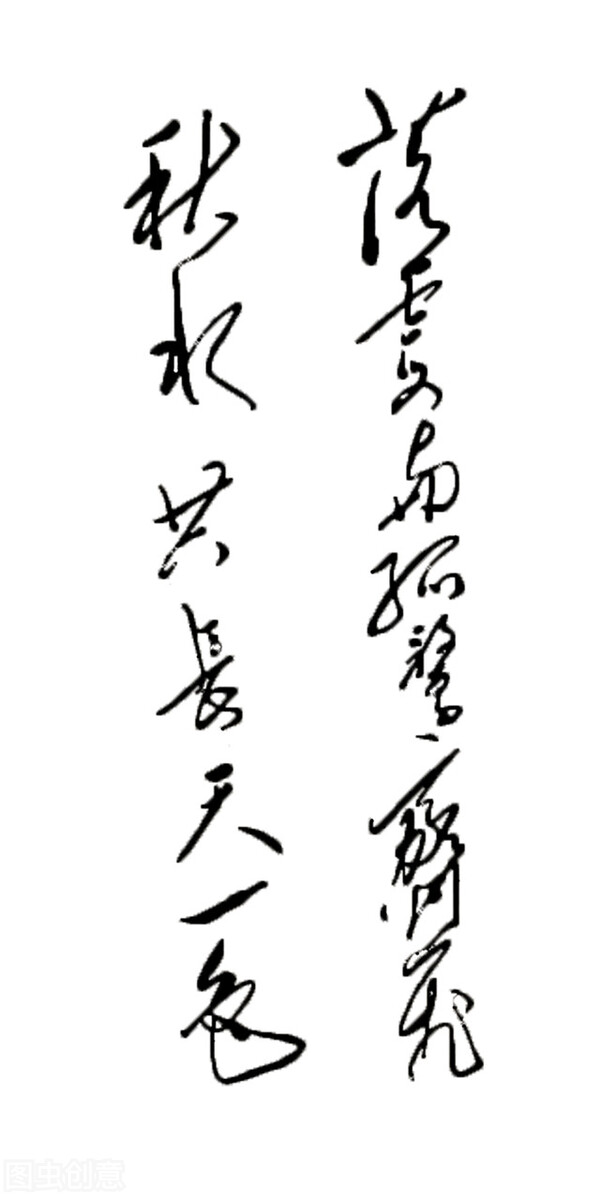 落霞与孤鹜齊飛
秋水共長天一色
图虫创意